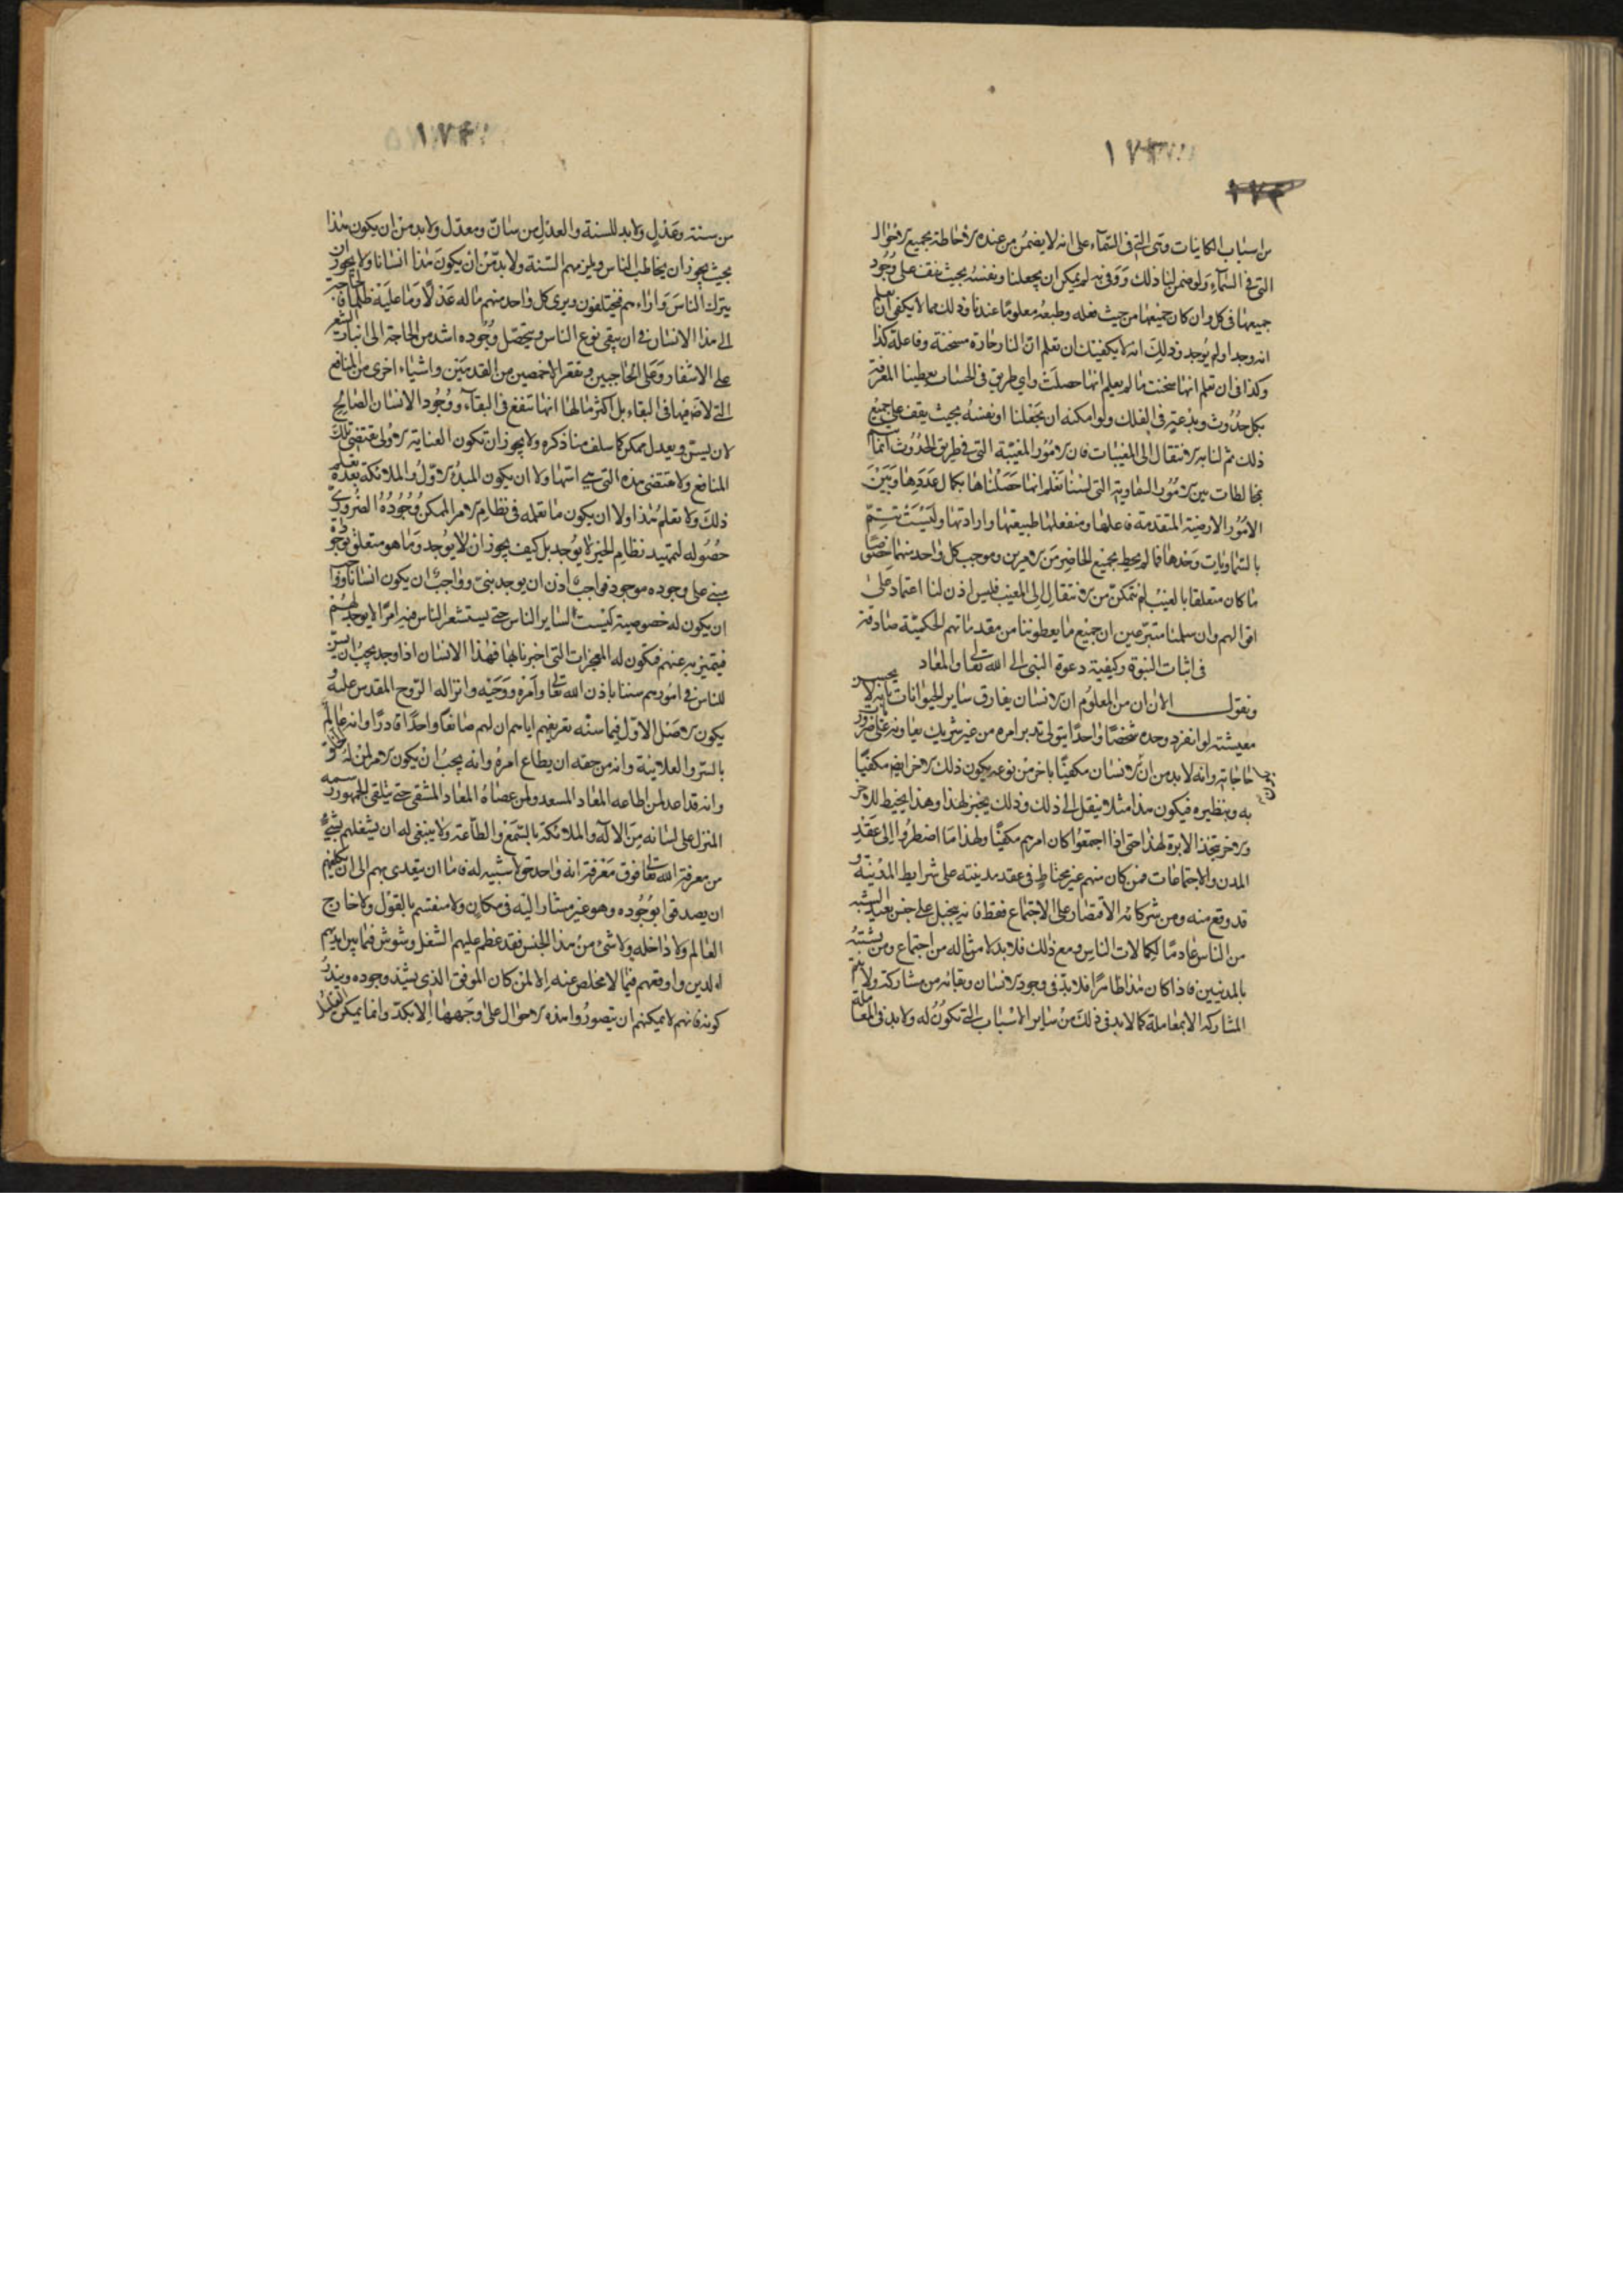 ١٧٣
من اسباب الكاينات وهى التى فى السماء على انه لا يضمن من عنده الاحاطة بجميع الاحوال
التى فى السماء ولو ضمن لنا ذلك ووفى به لم يمكن ان يجعلنا ونفسه بحيث نقف على وجود
جميعها فى كل وان كان جميعها من حيث فعله وطبعه معلومًا عندنا وذلك مما لا يكفى ان نعلم
انه وجد او لم يوجد وذلك انه لا يكفيك ان تعلم ان النار حارة مسخنة وفاعلة كذا
وكذا فى ان تعلم انها سخنت ما لم يعلم انها حصلت واى طريق فى الحساب يعطينا المعرفة
بكل حدوث وبدعة فى الفلك ولو امكنه ان يجعلنا او نفسه بحيث يقف على جميع
ذلك ثم لنا به الانتقال الى المغيبات فان الامور المغيبة التى فى طريق الحدوث انما تتم
بمخالطات بين الامور السماوية التى لسنا نعلم انها حصلناها بكمال عددها وبين
الامور الارضية المتقدمة فاعلها ومنفعلها طبيعتها وارادتها وليست تتم
بالسماويات وحدها فما لم يحط بجميع الحاضر من الامرين وموجب كل واحد منهما خصوصًا
ما كان متعلقا بالغيب لم نتمكن من الانتقال الى المغيب فليس اذن لنا اعتماد على
اقوالهم وان سلمنا متبرعين ان جميع ما يعطوننا من مقدماتهم الحكمية صادقة
فى اثبات النبوة وكيفية دعوة النبى الى الله تعالى والمعاد
ونقول الان ان من المعلوم ان الانسان يفارق ساير الحيوانات بانه لا يحسن
معيشته لو انفرد وحده شخصًا واحدًا يتولى تدبير امره من غير شريك يعاونه على ضرورات
حاجاته وانه لا بد من ان يكون الانسان مكفيًا باخر من نوعه يكون ذلك الاخر ايضا مكفيًا
به وبنظيره فيكون هذا مثلا ينقل الى ذلك وذلك يخبز لهذا وهذا يخيط للاخر
والاخر يتخذ الابرة لهذا حتى اذا اجتمعوا كان امرهم مكفيًا ولهذا ما اضطروا الى عقد
المدن والاجتماعات فمن كان منهم غير محتاط فى عقد مدينته على شرايط المدنية و
قد وقع منه ومن شركائه الاقتصار على الاجتماع فقط فانه يتحيل على جنس بعيد الشبه
من الناس عادمًا لكمالات الناس ومع ذلك فلا بد لامثاله من اجتماع ومن تشبه
بالمدنيين فاذا كان هذا ظاهرًا فلا بد فى وجود الانسان وبقائه من مشاركة ولا تتم
المشاركة الا بمعاملة كما لا بد فى ذلك من ساير الاسباب التى تكون له ولا بد فى المعاملة
١٧٤
من سنة وعدل ولا بد للسنة والعدل من سان ومعدل ولا بد من ان يكون هذا
بحيث يجوز ان يخاطب الناس ويلزمهم السنة ولا بد من ان يكون هذا انسانا ولا يجوز ان
يترك الناس واراءهم فيختلفون ويرى كل واحد منهم ما له عدلا وما عليه ظلما فالحاجة
الى هذا الانسان فى ان يبقى نوع الناس ويتحصل وجوده اشد من الحاجة الى انبات الشعر
على الاشفار وعلى الحاجبين وتقعير الاخمصين من القدمين واشياء اخرى من المنافع
التى لا ضرورة فيها فى البقاء بل اكثر ما لها انها تنفع فى البقاء ووجود الانسان الصالح
لان يسن ويعدل ممكن كما سلف منا ذكره ولا يجوز ان تكون العناية الاولى تقتضى تلك
المنافع ولا تقتضى هذه التى هى اسها ولا ان يكون المبدء الاول والملائكة بعده تعلم
ذلك ولا تعلم هذا ولا ان يكون ما تعلمه فى نظام الامر الممكن وجوده الضرورى
حصوله لتمهيد نظام الخير لا يوجد بل كيف يجوز ان لا يوجد وما هو متعلق بوجوده
مبنى على وجوده موجود فواجب اذن ان يوجد نبى وواجب ان يكون انسانا وواجب
ان يكون له خصوصية ليست لساير الناس حتى يستشعر الناس فيه امرًا لا يوجد لهم
فيتميز به عنهم فتكون له المعجزات التى اخبرنا بها فهذا الانسان اذا وجد يجب ان يسن
للناس فى امورهم سننا باذن الله تعالى وامره ووحيه وانزاله الروح المقدس عليه و
يكون الاصل الاول فيما سنه تعريفهم اياهم ان لهم صانعًا واحدًا قادرًا وانه عالم
بالسر والعلانية وانه من حقه ان يطاع امره وانه يجب ان يكون الامر لمن له الخلق
وانه قد اعد لمن اطاعه المعاد المسعد ولمن عصاه المعاد المشقى حتى يتلقى الجمهور رسمه
المنزل على لسانه من الاله والملائكة بالسمع والطاعة ولا ينبغى له ان يشغلهم بشىء
من معرفة الله تعالى فوق معرفة انه واحد حق لا شبيه له فاما ان يتعدى بهم الى ان يكلفهم
ان يصدقوا بوجوده وهو غير مشار اليه فى مكان ولا منقسم بالقول ولا خارج
العالم ولا داخله ولا شى من هذا الجنس فقد عظم عليهم الشغل وشوش فيما بين ايديهم
الدين واوقعهم فيما لا مخلص عنه الا لمن كان الموفق الذى يشذ وجوده ويندر
كونه فانهم لا يمكنهم ان يتصوروا هذه الاحوال على وجهها الا بكد وانما يمكن القليل